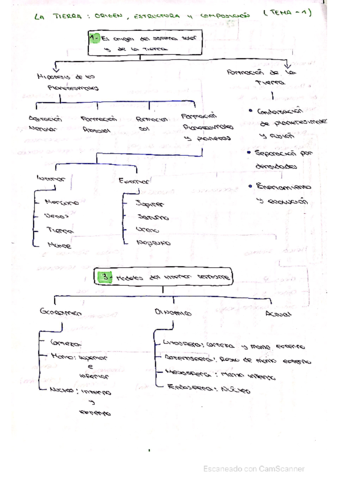 LA TIERRA: ORIGEN, ESTRUCTURA Y COMPOSICIÓN (TEMA-1)
1. El origen del sistema solar
y de la Tierra
Hipótesis de los
Planetesimales
Formación de la
Tierra
Formación
Formación
sol
Formación
Planetesimales
y planetas
• Condensación
de planetesimales
y fusión
• Separación por
densidades
• Enfriamiento
y evolución
Interior
Exterior
Mercurio
Venus
Tierra
Marte
Júpiter
Saturno
Urano
Neptuno
3. Modelos del interior terrestre
Geoquímico
Dinámico
Actual
Corteza
Manto: superior
e
inferior
Núcleo: interno
y
externo
Litosfera: corteza y manto externo
Astenosfera: Base de manto externo
Mesosfera: Manto interno
Endosfera: Núcleo
Escaneado con CamScanner